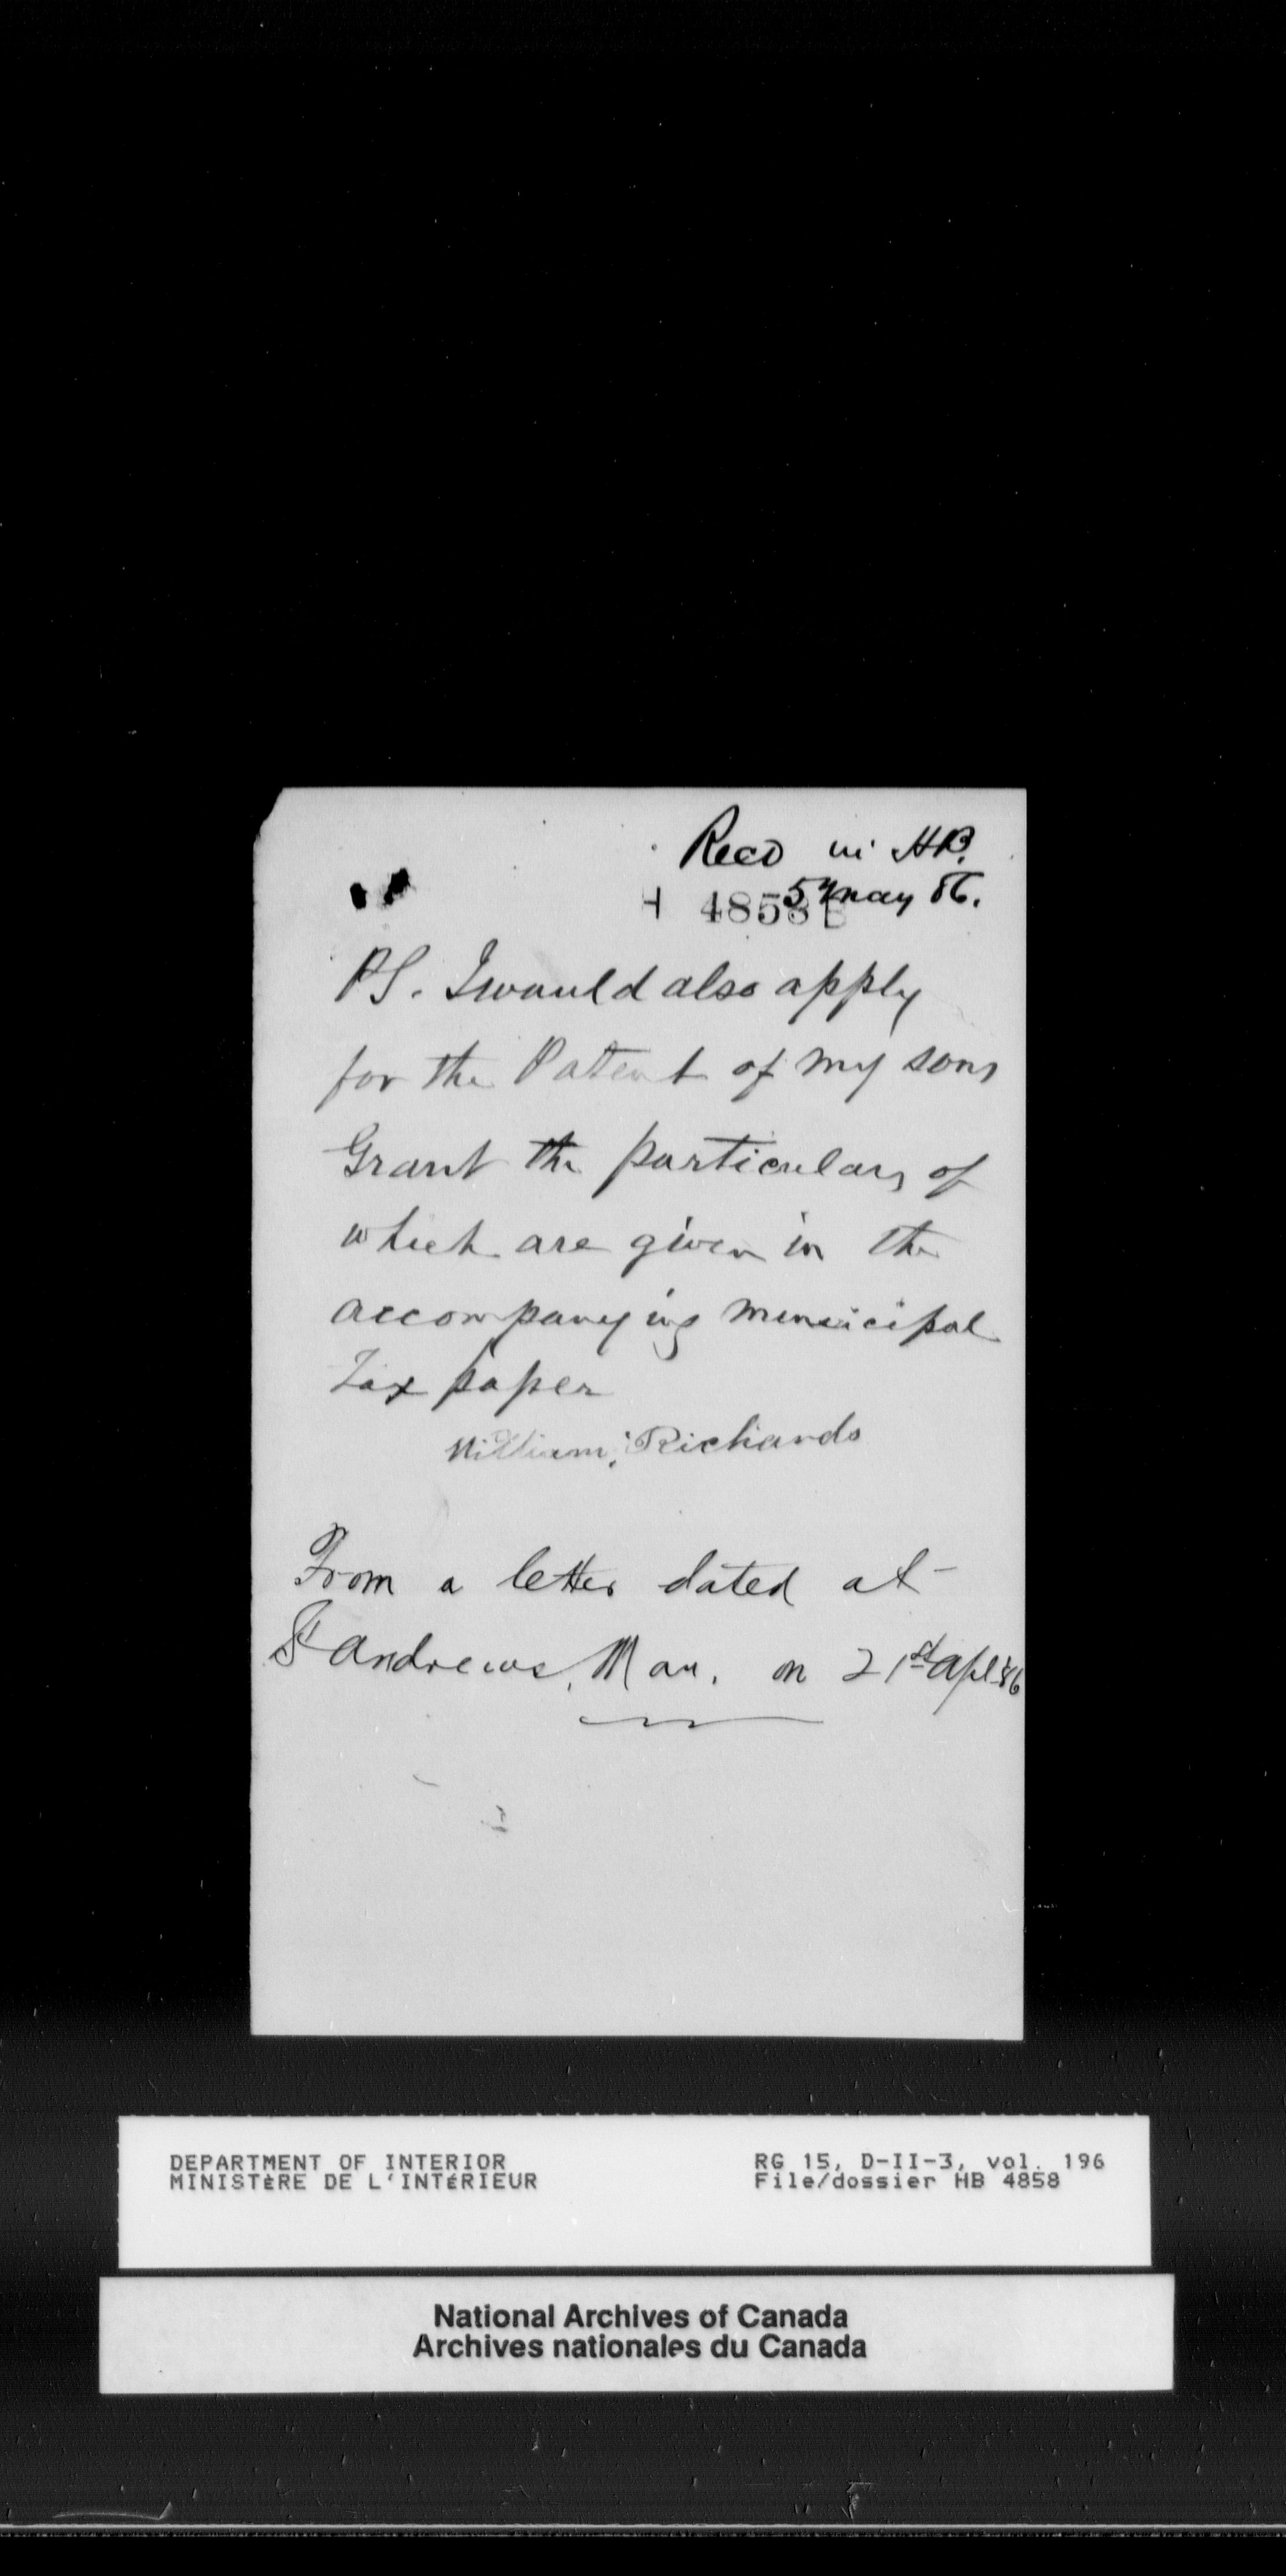 Recd in HB.
5 May 86.
H 4858
PS. I would also apply
for the Patent of my sons
Grant the particulars of
which are given in the
accompanying municipal
Tax paper
William Richards
From a letter dated at
St Andrews, Man. on 21st Apl 86
DEPARTMENT OF INTERIOR
MINISTÈRE DE L'INTÉRIEUR
RG 15, D-II-3, vol. 196
File/dossier HB 4858
National Archives of Canada
Archives nationales du Canada